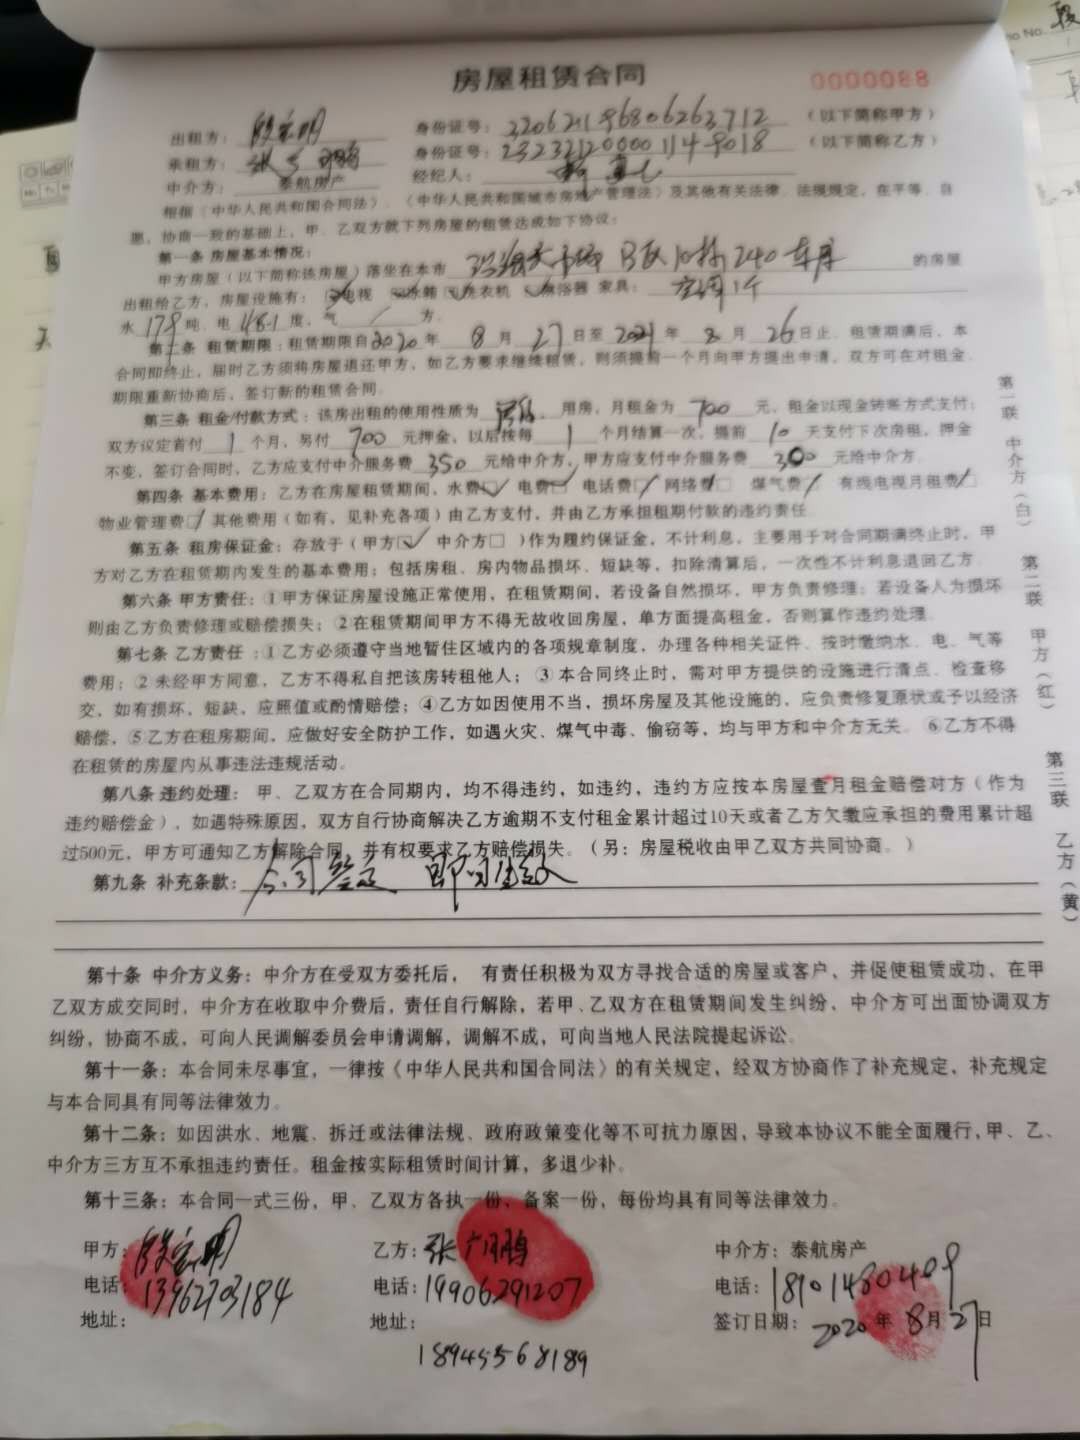 房屋租赁合同
0000088
出租方：
身份证号：320621196806263712（以下简称甲方）
承租方：张广鹏
身份证号：232321200001149018（以下简称乙方）
中介方：泰航房产
经纪人：
根据《中华人民共和国合同法》、《中华人民共和国城市房地产管理法》及其他有关法律、法规规定，在平等、自
愿，协商一致的基础上，甲、乙双方就下列房屋的租赁达成如下协议：
第一条 房屋基本情况：
甲方房屋（以下简称该房屋）落坐在本市 240 车库 的房屋
出租给乙方，房屋设施有：□电视 □冰箱 □洗衣机 □热浴器 家具：空调1个
水179吨、电1481度，气 / 方.
第二条 租赁期限：租赁期限自2020年8月27日至2021年8月26日止．租赁期满后，本
合同即终止，届时乙方须将房屋退还甲方，如乙方要求继续租赁，则须提前一个月向甲方提出申请，双方可在对租金．
期限重新协商后，签订新的租赁合同．
第三条 租金/付款方式：该房出租的使用性质为 用房，月租金为 700 元，租金以现金转帐方式支付；
双方议定首付 1 个月、另付 700 元押金，以后按每 1 个月结算一次，提前 10 天支付下次房租，押金
不变，签订合同时，乙方应支付中介服务费 350 元给中介方，甲方应支付中介服务费 300 元给中介方．
第四条 基本费用：乙方在房屋租赁期间，水费□ 电费□ 电话费□ 网络费□ 煤气费□ 有线电视月租费□
物业管理费□ 其他费用（如有，见补充各项）由乙方支付，并由乙方承担租期付款的违约责任．
第五条 租房保证金：存放于（甲方□ 中介方□ ）作为履约保证金，不计利息，主要用于对合同期满终止时，甲
方对乙方在租赁期内发生的基本费用；包括房租、房内物品损坏、短缺等，扣除清算后，一次性不计利息退回乙方．
第六条 甲方责任：①甲方保证房屋设施正常使用，在租赁期间，若设备自然损坏，甲方负责修理；若设备人为损坏
则由乙方负责修理或赔偿损失；②在租赁期间甲方不得无故收回房屋，单方面提高租金，否则算作违约处理．
第七条 乙方责任：①乙方必须遵守当地暂住区域内的各项规章制度，办理各种相关证件、按时缴纳水、电、气等
费用；②未经甲方同意，乙方不得私自把该房转租他人；③本合同终止时，需对甲方提供的设施进行清点、检查移
交，如有损坏，短缺，应照值或酌情赔偿；④乙方如因使用不当，损坏房屋及其他设施的，应负责修复原状或予以经济
赔偿，⑤乙方在租房期间，应做好安全防护工作，如遇火灾、煤气中毒、偷窃等，均与甲方和中介方无关．⑥乙方不得
在租赁的房屋内从事违法违规活动。
第八条 违约处理： 甲、乙双方在合同期内，均不得违约，如违约，违约方应按本房屋壹月租金赔偿对方（作为
违约赔偿金），如遇特殊原因，双方自行协商解决乙方逾期不支付租金累计超过10天或者乙方欠缴应承担的费用累计超
过500元，甲方可通知乙方解除合同，并有权要求乙方赔偿损失。（另：房屋税收由甲乙双方共同协商。）
第九条 补充条款：合同签定 即可生效
第十条 中介方义务：中介方在受双方委托后， 有责任积极为双方寻找合适的房屋或客户，并促使租赁成功，在甲
乙双方成交同时，中介方在收取中介费后，责任自行解除，若甲、乙双方在租赁期间发生纠纷，中介方可出面协调双方
纠纷，协商不成，可向人民调解委员会申请调解，调解不成，可向当地人民法院提起诉讼。
第十一条：本合同未尽事宜，一律按《中华人民共和国合同法》的有关规定，经双方协商作了补充规定，补充规定
与本合同具有同等法律效力。
第十二条：如因洪水、地震、拆迁或法律法规、政府政策变化等不可抗力原因，导致本协议不能全面履行，甲、乙、
中介方三方互不承担违约责任。租金按实际租赁时间计算，多退少补。
第十三条：本合同一式三份，甲、乙双方各执一份、备案一份，每份均具有同等法律效力．
甲方：
乙方：张广鹏
中介方：泰航房产
电话：13962703184
电话：19906291207
电话：18901480409
地址：
地址：
签订日期：2020年8月27日
18945568189
第一联 中介方（白）
第二联 甲方（红）
第三联 乙方（黄）